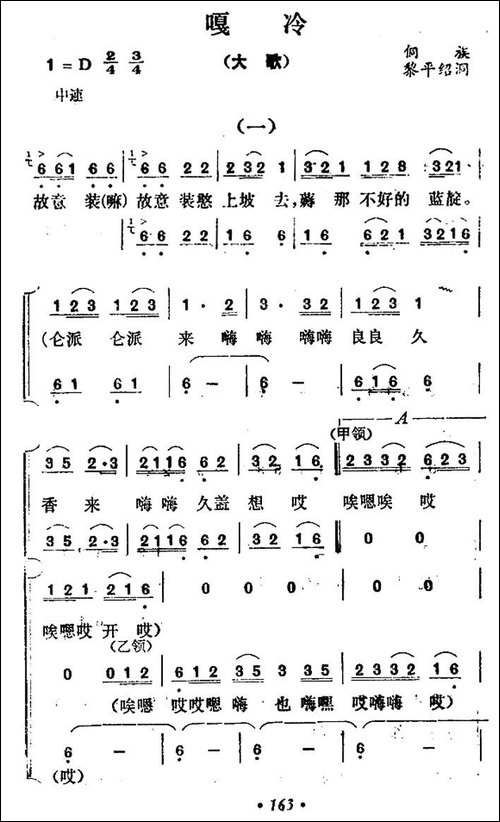 嘎 冷
（大 歌）
1 = D 2/4 3/4
侗 族
黎平绍洞
中速
（一）
6 6 1 6 6 | 6 6 2 2 | 2 3 2 1 | 3 2 1 1 2 8 3 2 1 |
故意 装(嘛) 故意 装憨 上坡 去, 那 不好的 蓝靛。
6 6 2 2 | 1 6 6 | 1 6 6 2 1 3 2 1 6 |
1 2 3 1 2 3 | 1 · 2 | 3 · 3 2 | 1 2 3 1
(仑派 仑派 来 嗨 嗨 嗨嗨 良良 久
6 1 6 1 | 6 – | 6 – | 6 1 6 6
A
(甲领)
3 5 2 · 3 | 2 1 1 6 6 2 | 3 2 1 6 | 2 3 3 2 6 2 3
香 来 嗨 嗨 久盖 想 哎 唉嗯唉 哎
3 5 2 · 3 | 2 1 1 6 6 2 | 3 2 1 6 | 0 0
1 2 1 2 1 6 | 0 0 | 0 0 | 0 0
唉嗯哎 开 哎)
(乙领)
0 0 1 2 | 6 1 2 3 5 | 3 5 3 | 2 3 3 2 1 6
(唉嗯 哎哎嗯 嗨 也 嗨嘿 哎嗨嗨 哎)
6 – | 6 – | 6 – | 6 –
(哎)
· 163 ·